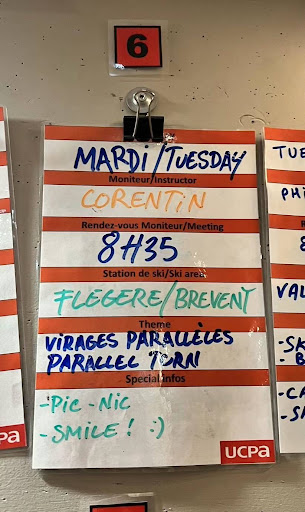 6
MARDI/TUESDAY
Moniteur/Instructor
CORENTIN
Rendez-vous Moniteur/Meeting
8H35
Station de ski/Ski area
FLEGERE/BREVENT
Theme
VIRAGES PARALLÈLES
PARALLEL TURN
Special infos
-PIC -NIC
-SMILE! :)
UCPA
TUE
PHI
VAL
-SK
-CA
UCPA